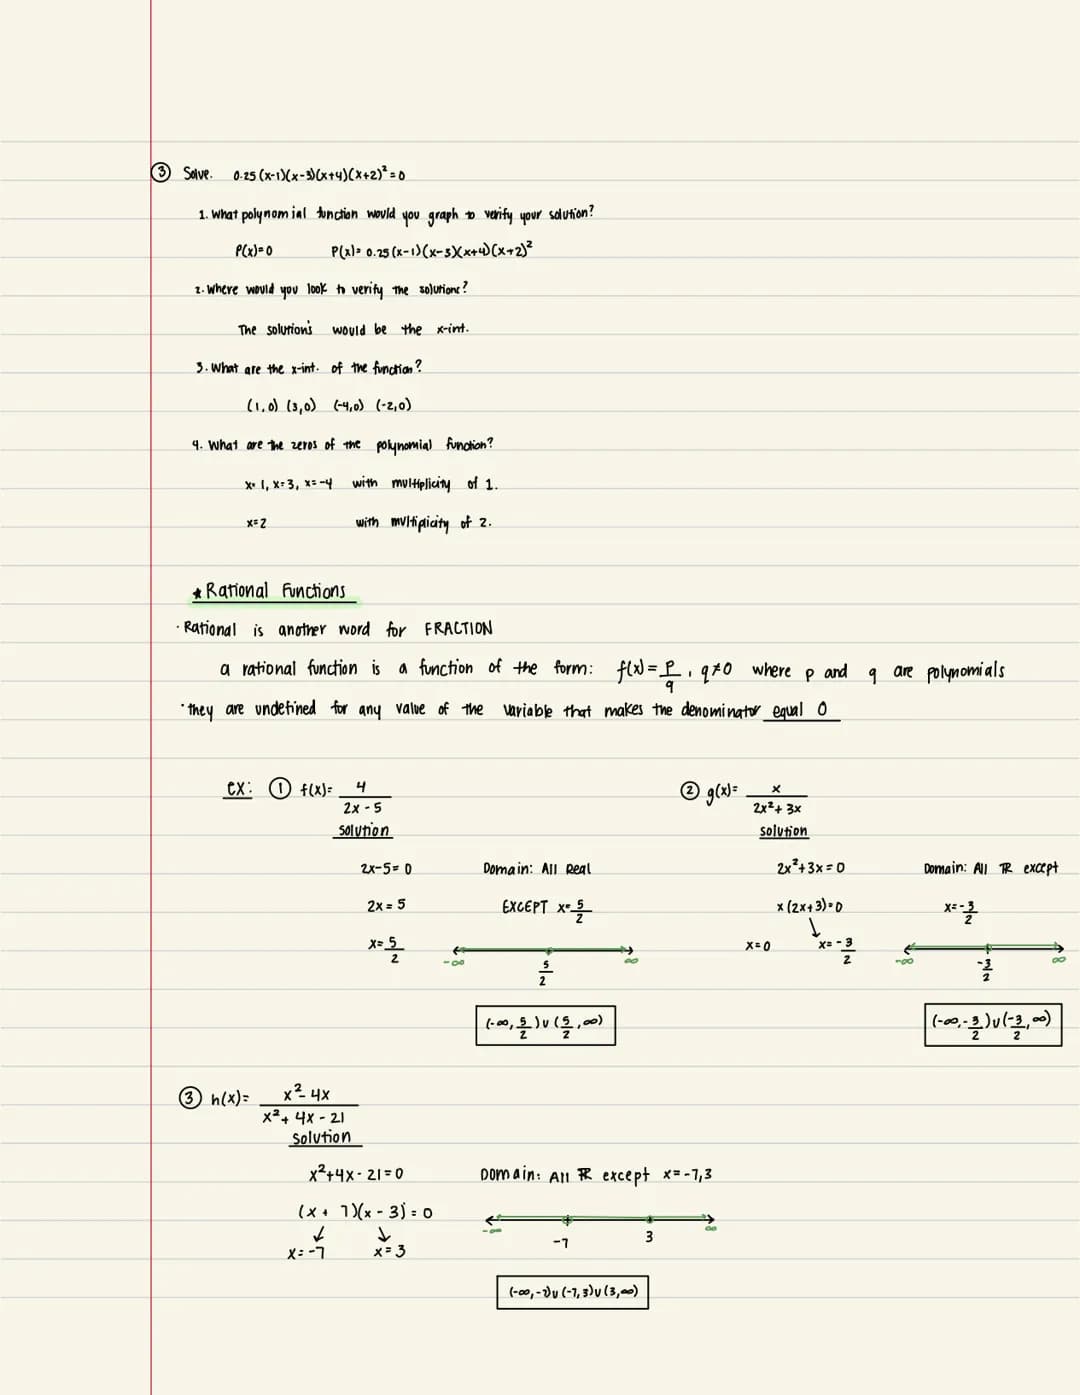 ③ Solve. 0.25 (x-1)(x-3)(x+4)(x+2)² = 0
1. What polynomial function would you graph to verify your solution?
P(x)=0 P(x)= 0.25(x-1)(x-3)(x+4)(x+2)²
2. Where would you look to verify the solutions?
The solution's would be the x-int.
3. What are the x-int. of the function?
(1,0) (3,0) (-4,0) (-2,0)
4. What are the zeros of the polynomial function?
x= 1, x=3, x=-4 with multiplicity of 1.
x=2 with multiplicity of 2.
★ Rational Functions
· Rational is another word for FRACTION
a rational function is a function of the form: f(x) = p/q , q≠0 where p and q are polynomials
· they are undefined for any value of the variable that makes the denominator equal 0
ex: ① f(x)= 4/(2x-5) ② g(x)= x/(2x²+3x)
solution solution
2x-5=0 Domain: All Real 2x²+3x=0 Domain: All ℝ except
2x=5 EXCEPT x=5/2 x(2x+3)=0 x=-3/2
x=5/2 x=0 x=-3/2
-∞ 5/2 ∞ -∞ -3/2 ∞
(-∞, 5/2) ∪ (5/2, ∞) (-∞, -3/2) ∪ (-3/2, ∞)
③ h(x)= (x²-4x)/(x²+4x-21)
solution
x²+4x-21=0 Domain: All ℝ except x=-7,3
(x+7)(x-3)=0
-∞ -7 3 ∞
x=-7 x=3
(-∞,-7)∪(-7,3)∪(3,∞)